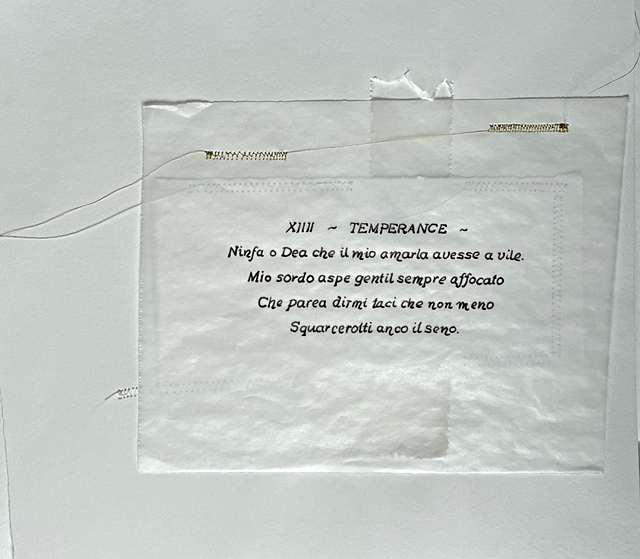 XIIII ~ TEMPERANCE ~
Ninfa o Dea che il mio amarla avesse a vile.
Mio sordo aspe gentil sempre affocato
Che parea dirmi taci che non meno
Squarcerotti anco il seno.